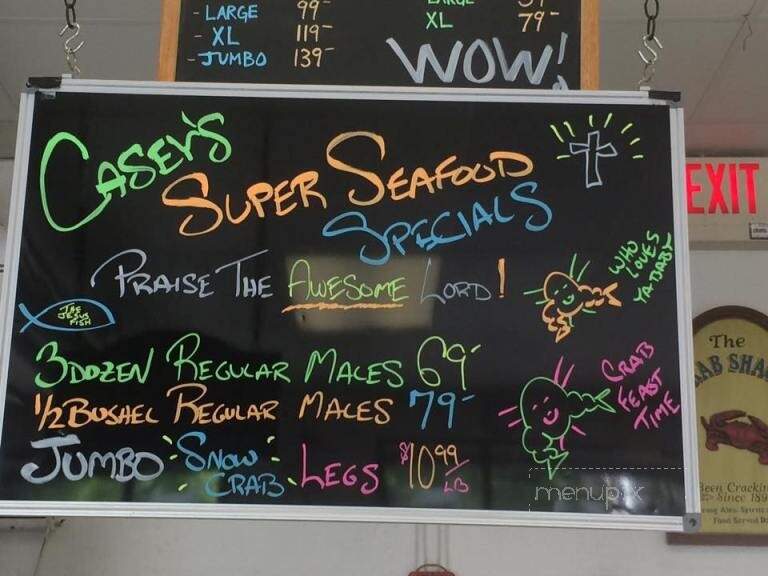 - LARGE 99-
- XL 119-
- JUMBO 139-
XL 79-
WOW!
CASEY'S
SUPER SEAFOOD
SPECIALS
PRAISE THE AWESOME LORD!
THE
JESUS
FISH
WHO
LOVES
YA BABY
3 DOZEN REGULAR MALES 69-
1/2 BUSHEL REGULAR MALES 79-
JUMBO SNOW CRAB LEGS $10.99/LB
CRAB
FEAST
TIME
menupix
EXIT
The
Been Crackin
Since 189
Food Served Da